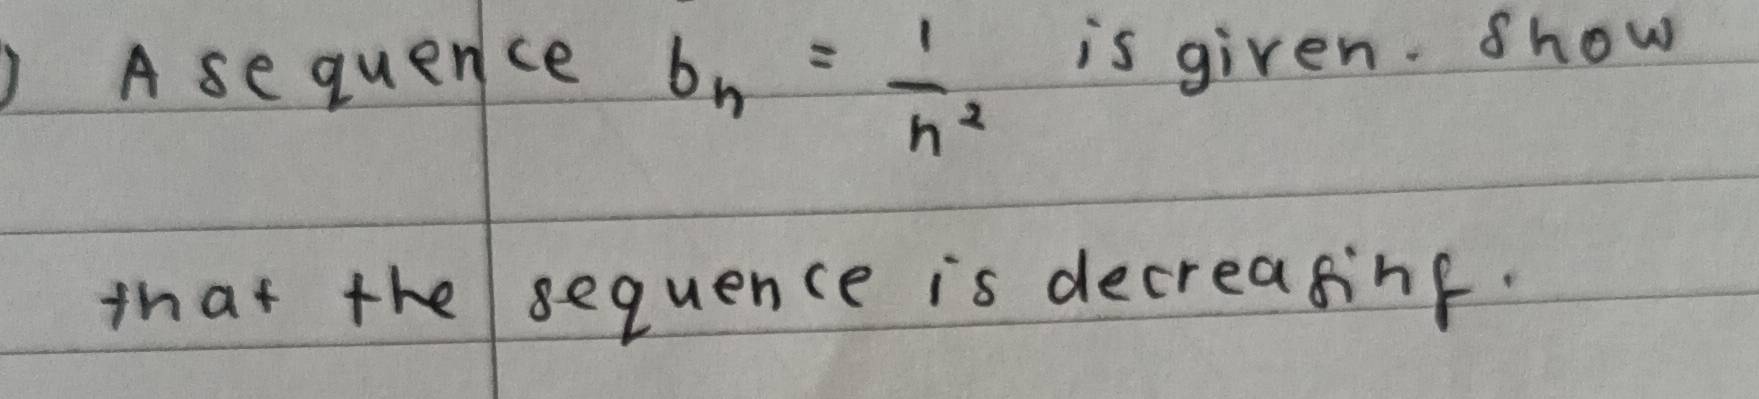 ) A sequence bₙ = 1/n² is given. Show
that the sequence is decreasing.